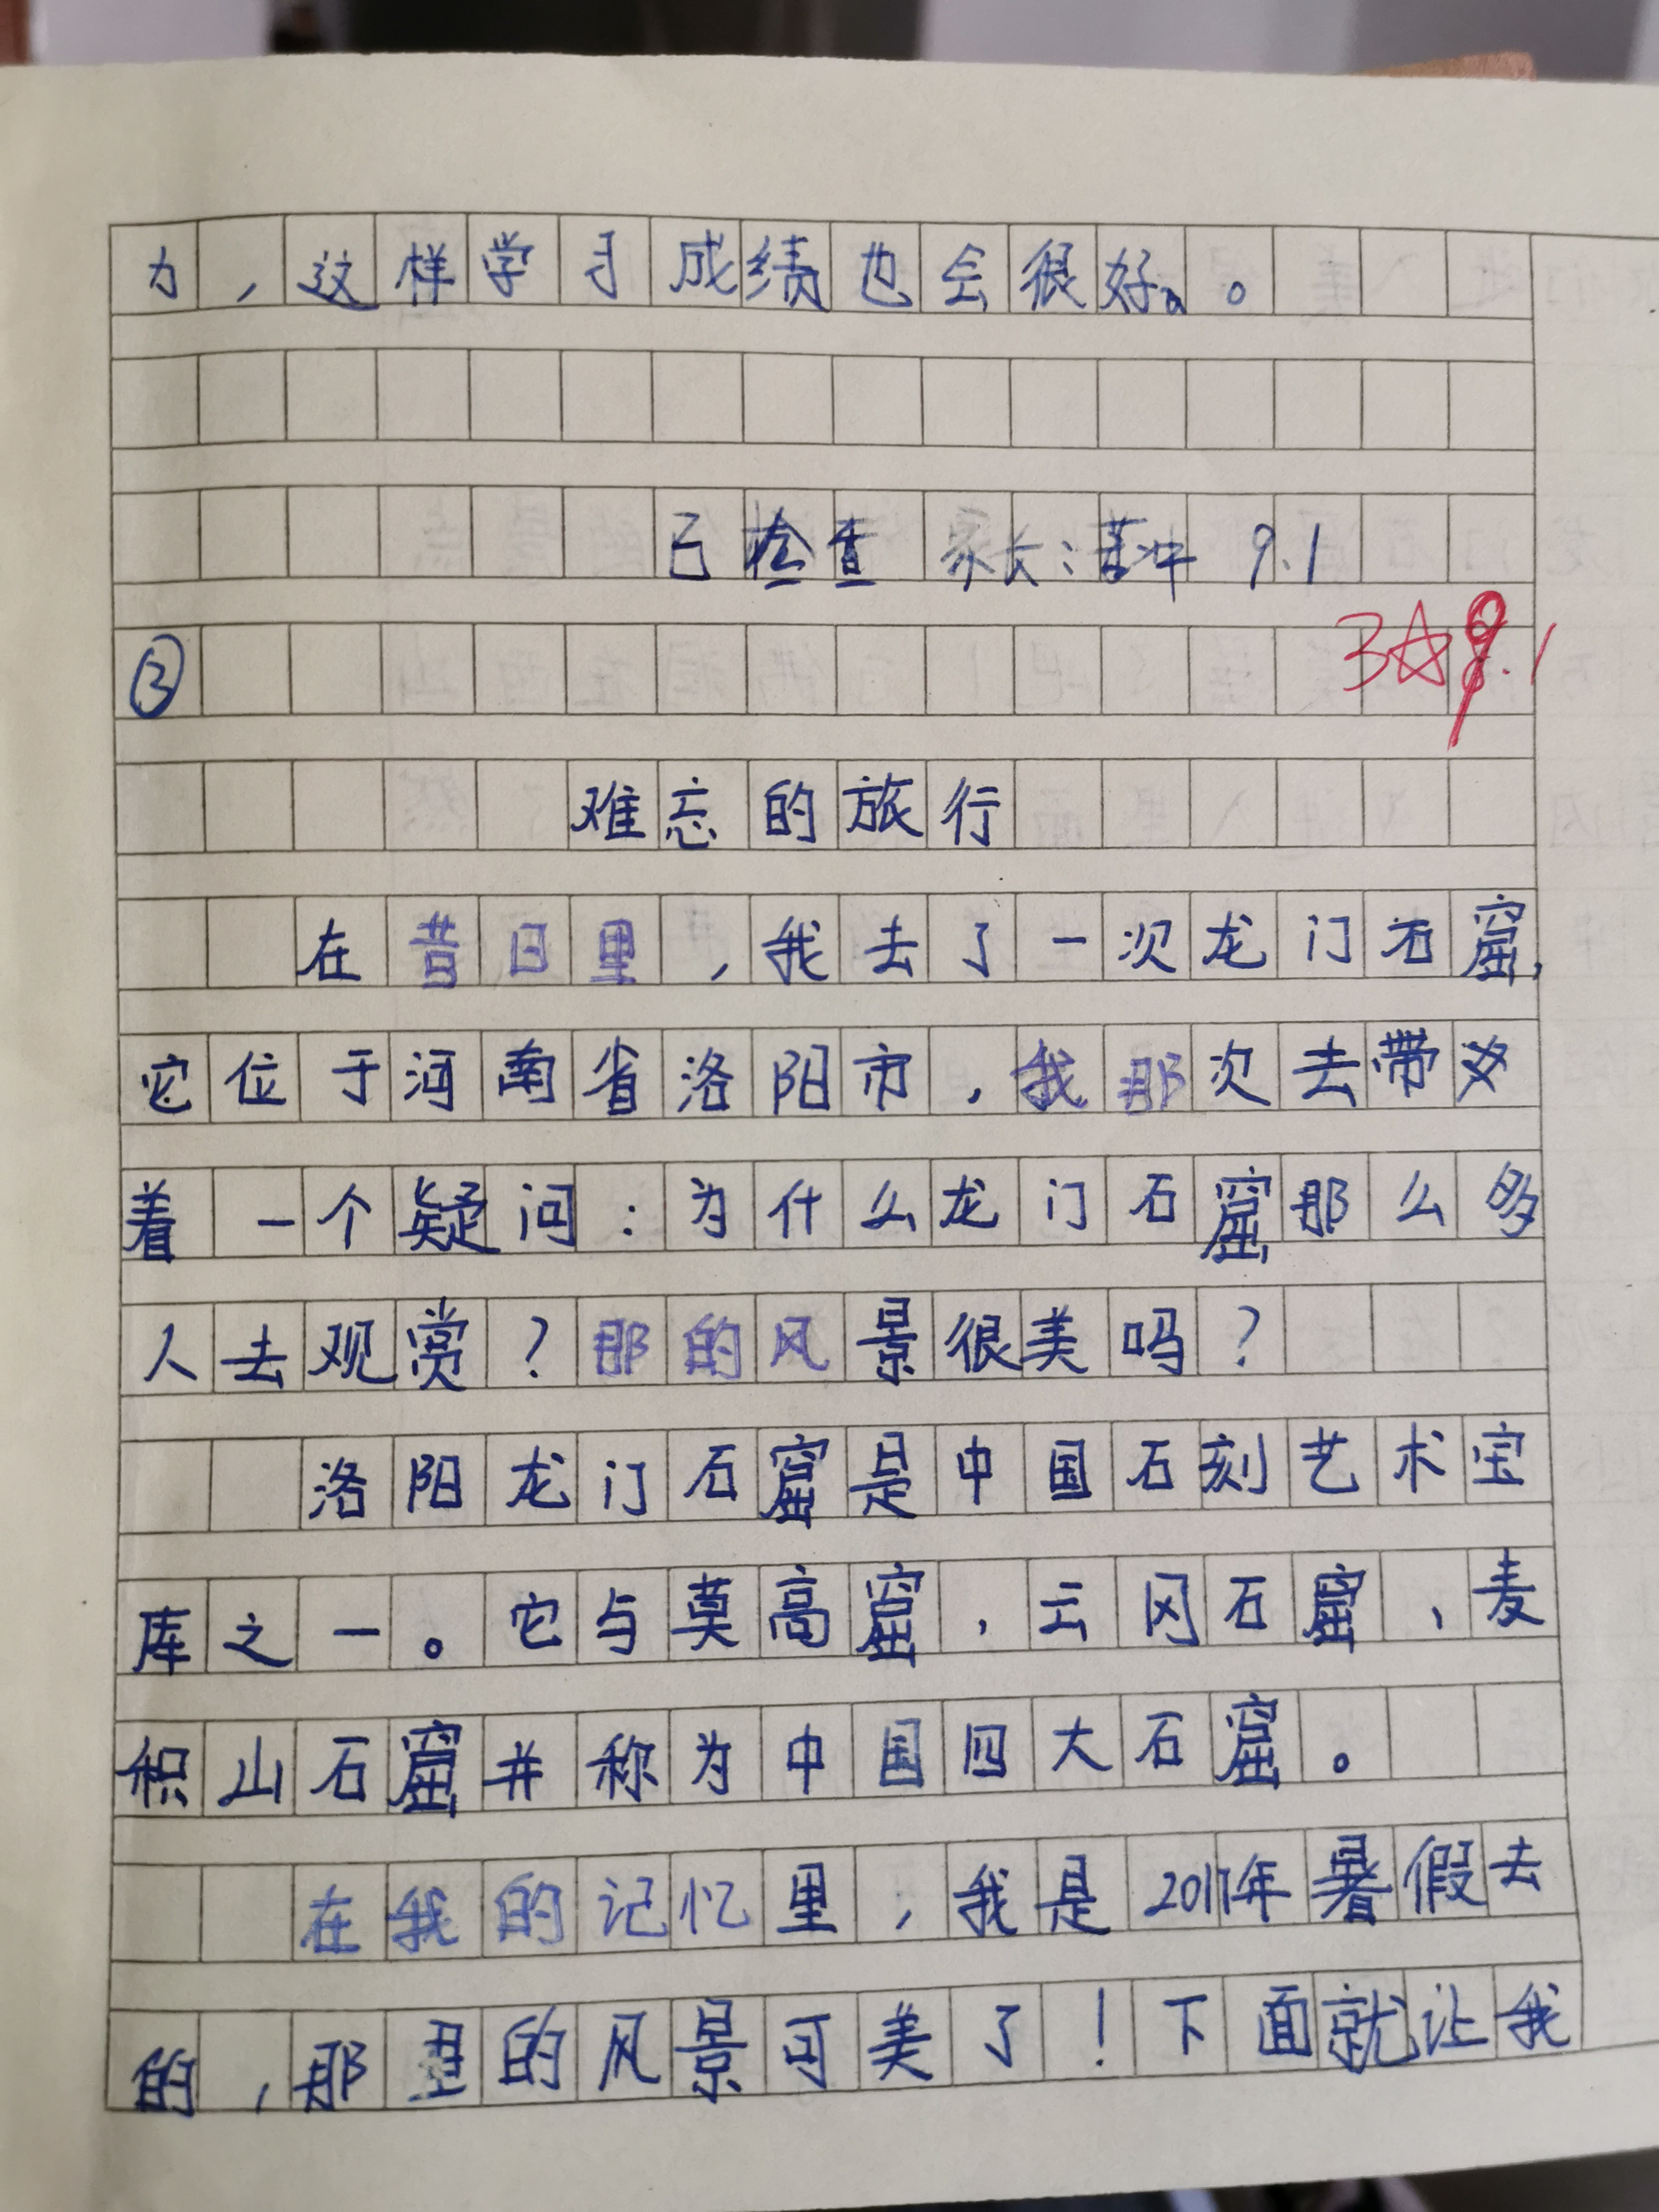 力，这样学习成绩也会很好。
已检查 家长： 9.1
③
3☆ 9.1
难忘的旅行
在昔日里，我去了一次龙门石窟，
它位于河南省洛阳市，我那次去带
着一个疑问：为什么龙门石窟那么多
人去观赏？那的风景很美吗？
洛阳龙门石窟是中国石刻艺术宝
库之一。它与莫高窟，云冈石窟、麦
积山石窟并称为中国四大石窟。
在我的记忆里，我是2017年暑假去
的，那里的风景可美了！下面就让我